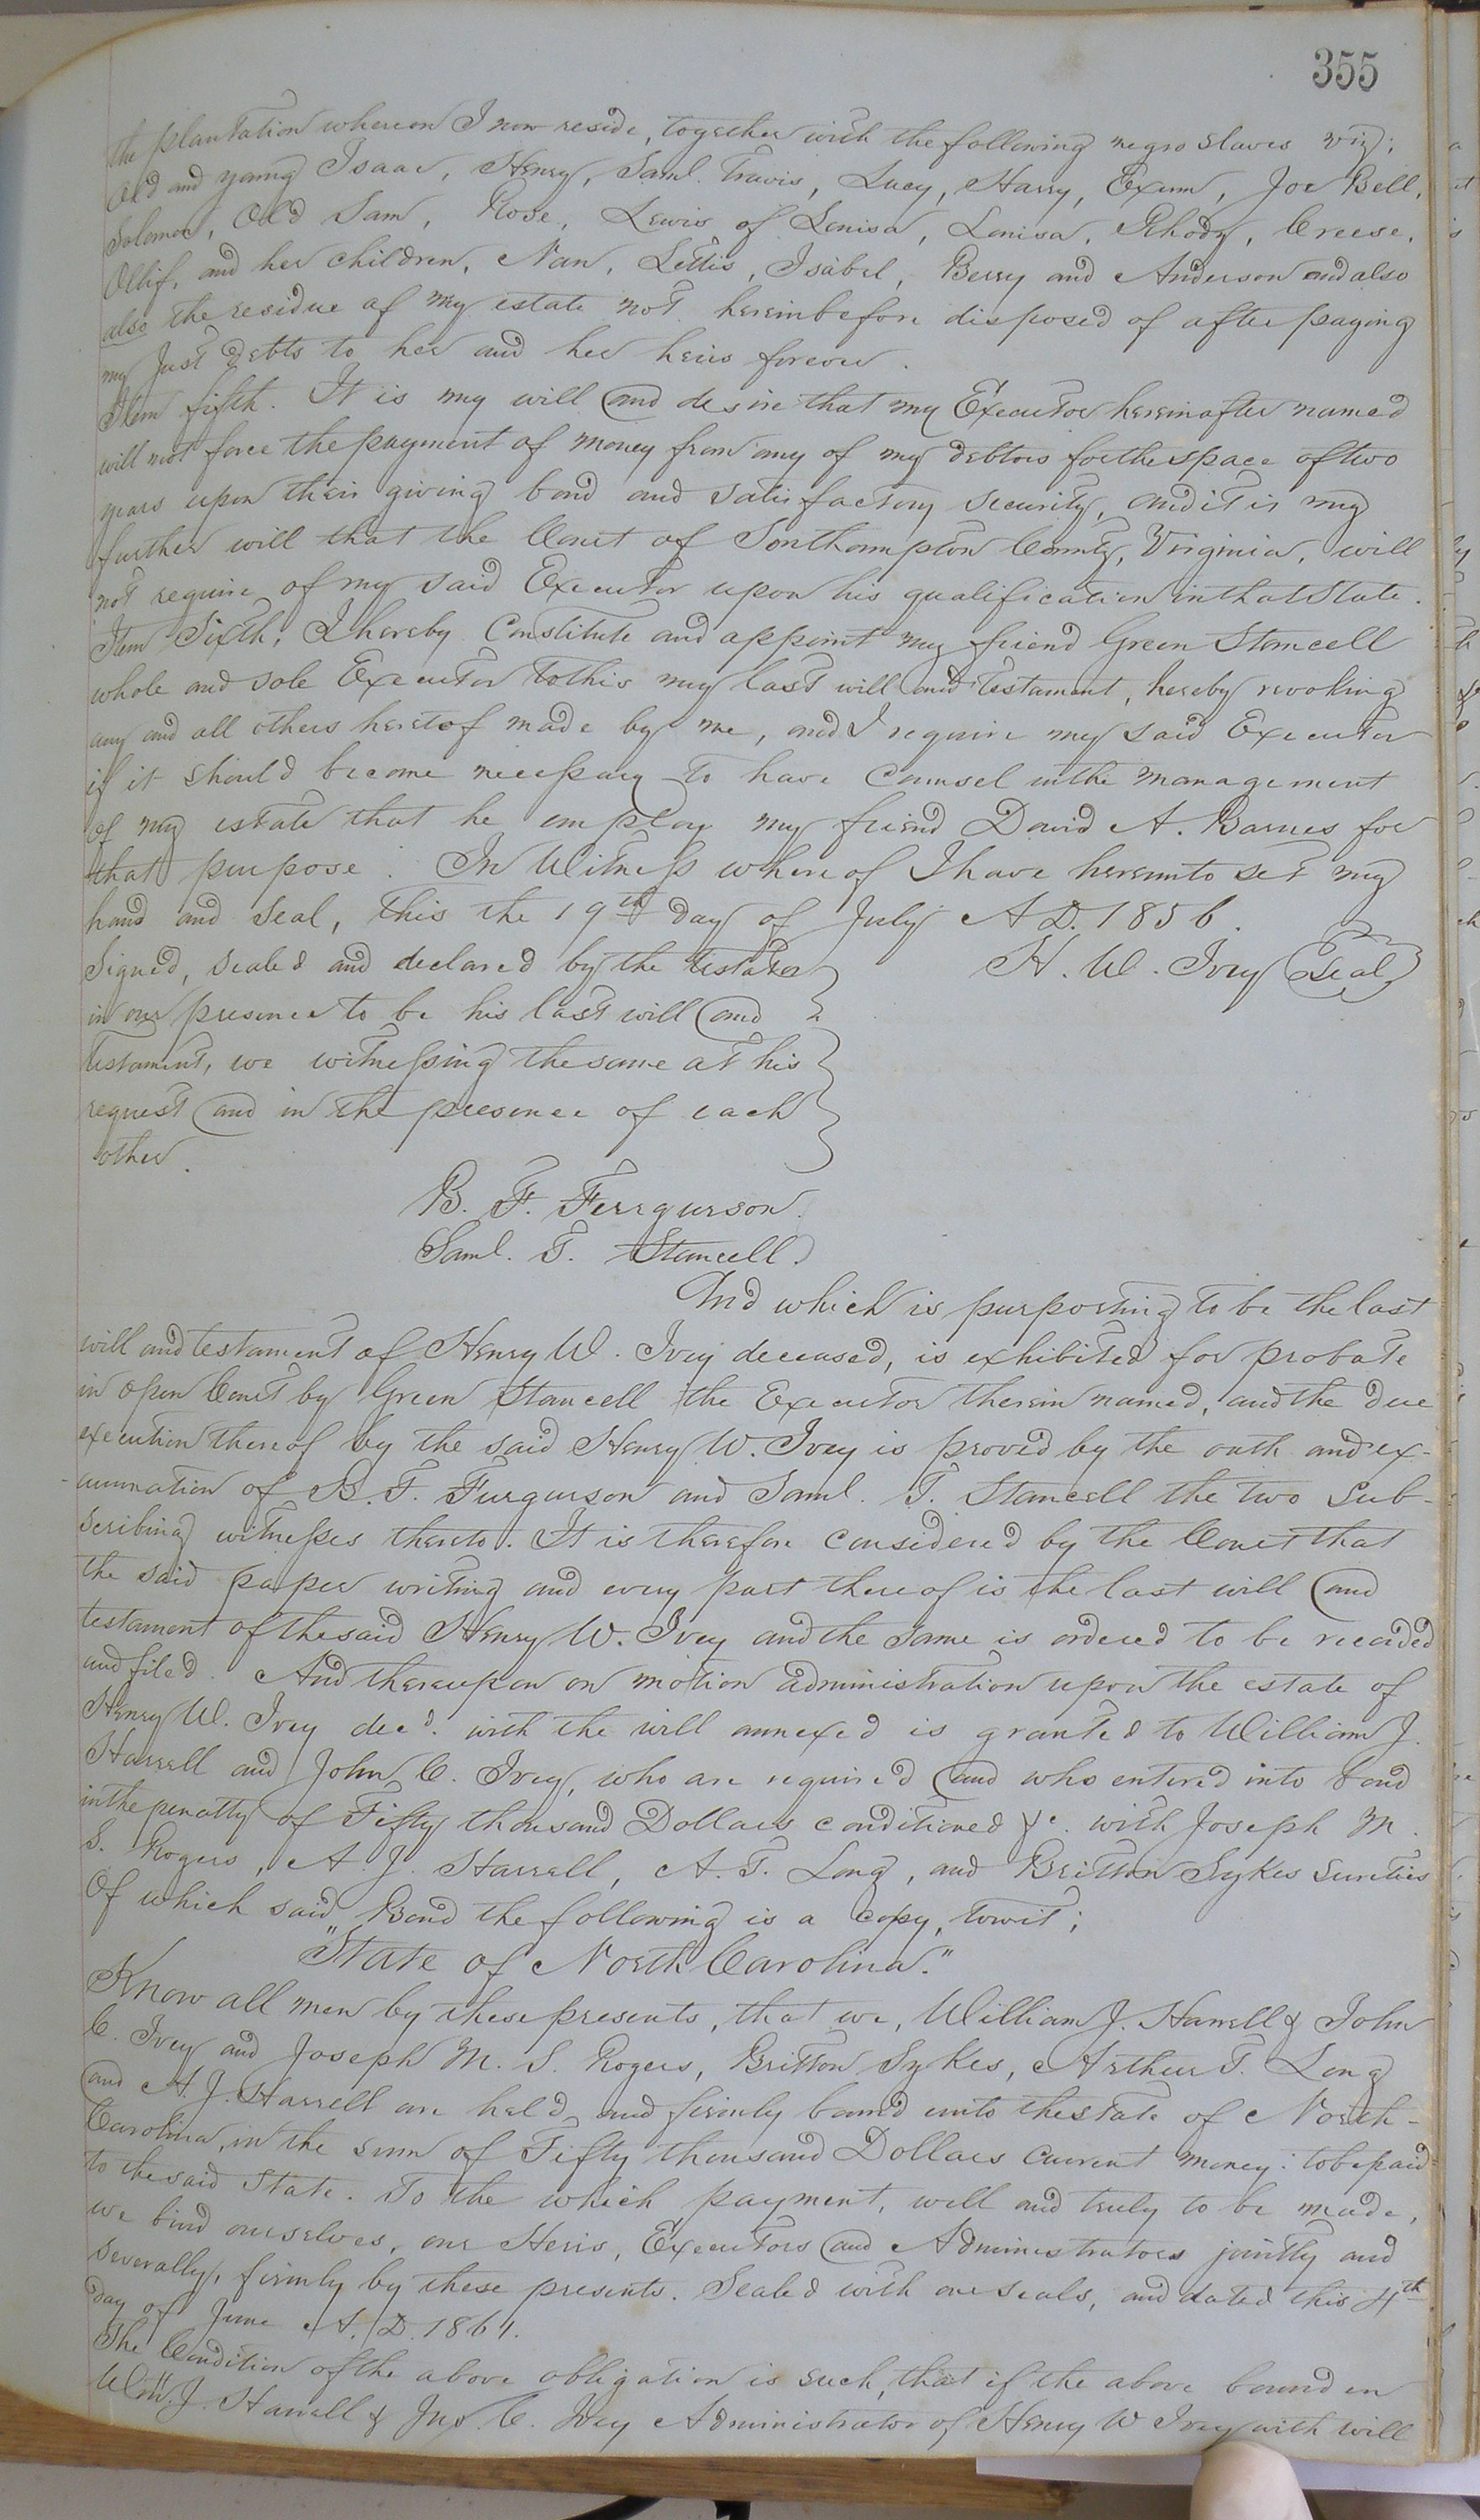 355
the plantation whereon I now reside, together with the following negro slaves viz;
Old and young Isaac, Henry, Saml. Travis, Lucy, Harry, Exum, Joe Bell,
Solomon, Old Sam, Rose, Lewis of Lenisa, Lenisa, Rhody, Creese,
Ollif, and her children, Nan, Lettis, Isabel, Berry and Anderson and also
also the residue of my estate not hereinbefore disposed of after paying
my Just debts to her and her heirs forever.
Item fifth. It is my will and desire that my Executor hereinafter named
will not force the payment of money from any of my debtors for the space of two
years upon their giving bond and satisfactory security, and it is my
further will that the Court of Southampton County, Virginia, will
not require of my said Executor upon his qualification in that State.
Item Sixth; I hereby Constitute and appoint my friend Green Stancell
whole and sole Executor to this my last will and testament, hereby revoking
any and all others heretof made by me, and I require my said Executor
if it should become necessary to have Counsel in the management
of my estate that he employ my friend David A. Barnes for
that purpose. In Witness whereof I have hereunto set my
hand and seal, this the 19th day of July A D. 1856.
Signed, sealed and declared by the testator H. W. Ivey Seal
in our presence to be his last will and
testament, we witnessing the same at his
request and in the presence of each
other.
B. F. Ferrgurson.
Saml. T. Stancell.
And which is purporting to be the last
will and testament of Henry W. Ivey deceased, is exhibited for probate
in open Court by Green Stancell the Executor therein named, and the due
execution thereof by the said Henry W. Ivey is proved by the oath and ex-
amination of B. F. Furgurson and Saml. T. Stancell the two sub-
scribing witnesses thereto. It is therefore considered by the Court that
the said paper writing and every part thereof is the last will and
testament of the said Henry W. Ivey and the same is ordered to be recorded
and filed. And thereupon on motion administration upon the estate of
Henry W. Ivey decd. with the will annexed is granted to William J.
Harrell and John C. Ivey, who are required and who entered into bond
in the penalty of Fifty thousand Dollars conditioned &c. with Joseph M.
S. Rogers, A. J. Harrell, A. T. Long, and Britton Sykes sureties
Of which said Bond the following is a copy, towit;
"State of North Carolina."
Know all men by these presents, that we, William J. Harrell & John
C. Ivey and Joseph M. S. Rogers, Britton Sykes, Arthur T. Long
and A. J. Harrell are held and firmly bound unto the state of North-
Carolina, in the sum of Fifty thousand Dollars current money: to be paid
to the said State. To the which payment, well and truly to be made,
we bind ourselves, our Heris, Executors and Administrators jointly and
severally, firmly by these presents. Sealed with our seals, and dated this 4th
day of June A. D. 1861.
The Condition of the above obligation is such, that if the above bounden
Wm. J. Harrell & Jno. C. Ivey Administrator of Henry W Ivey with will